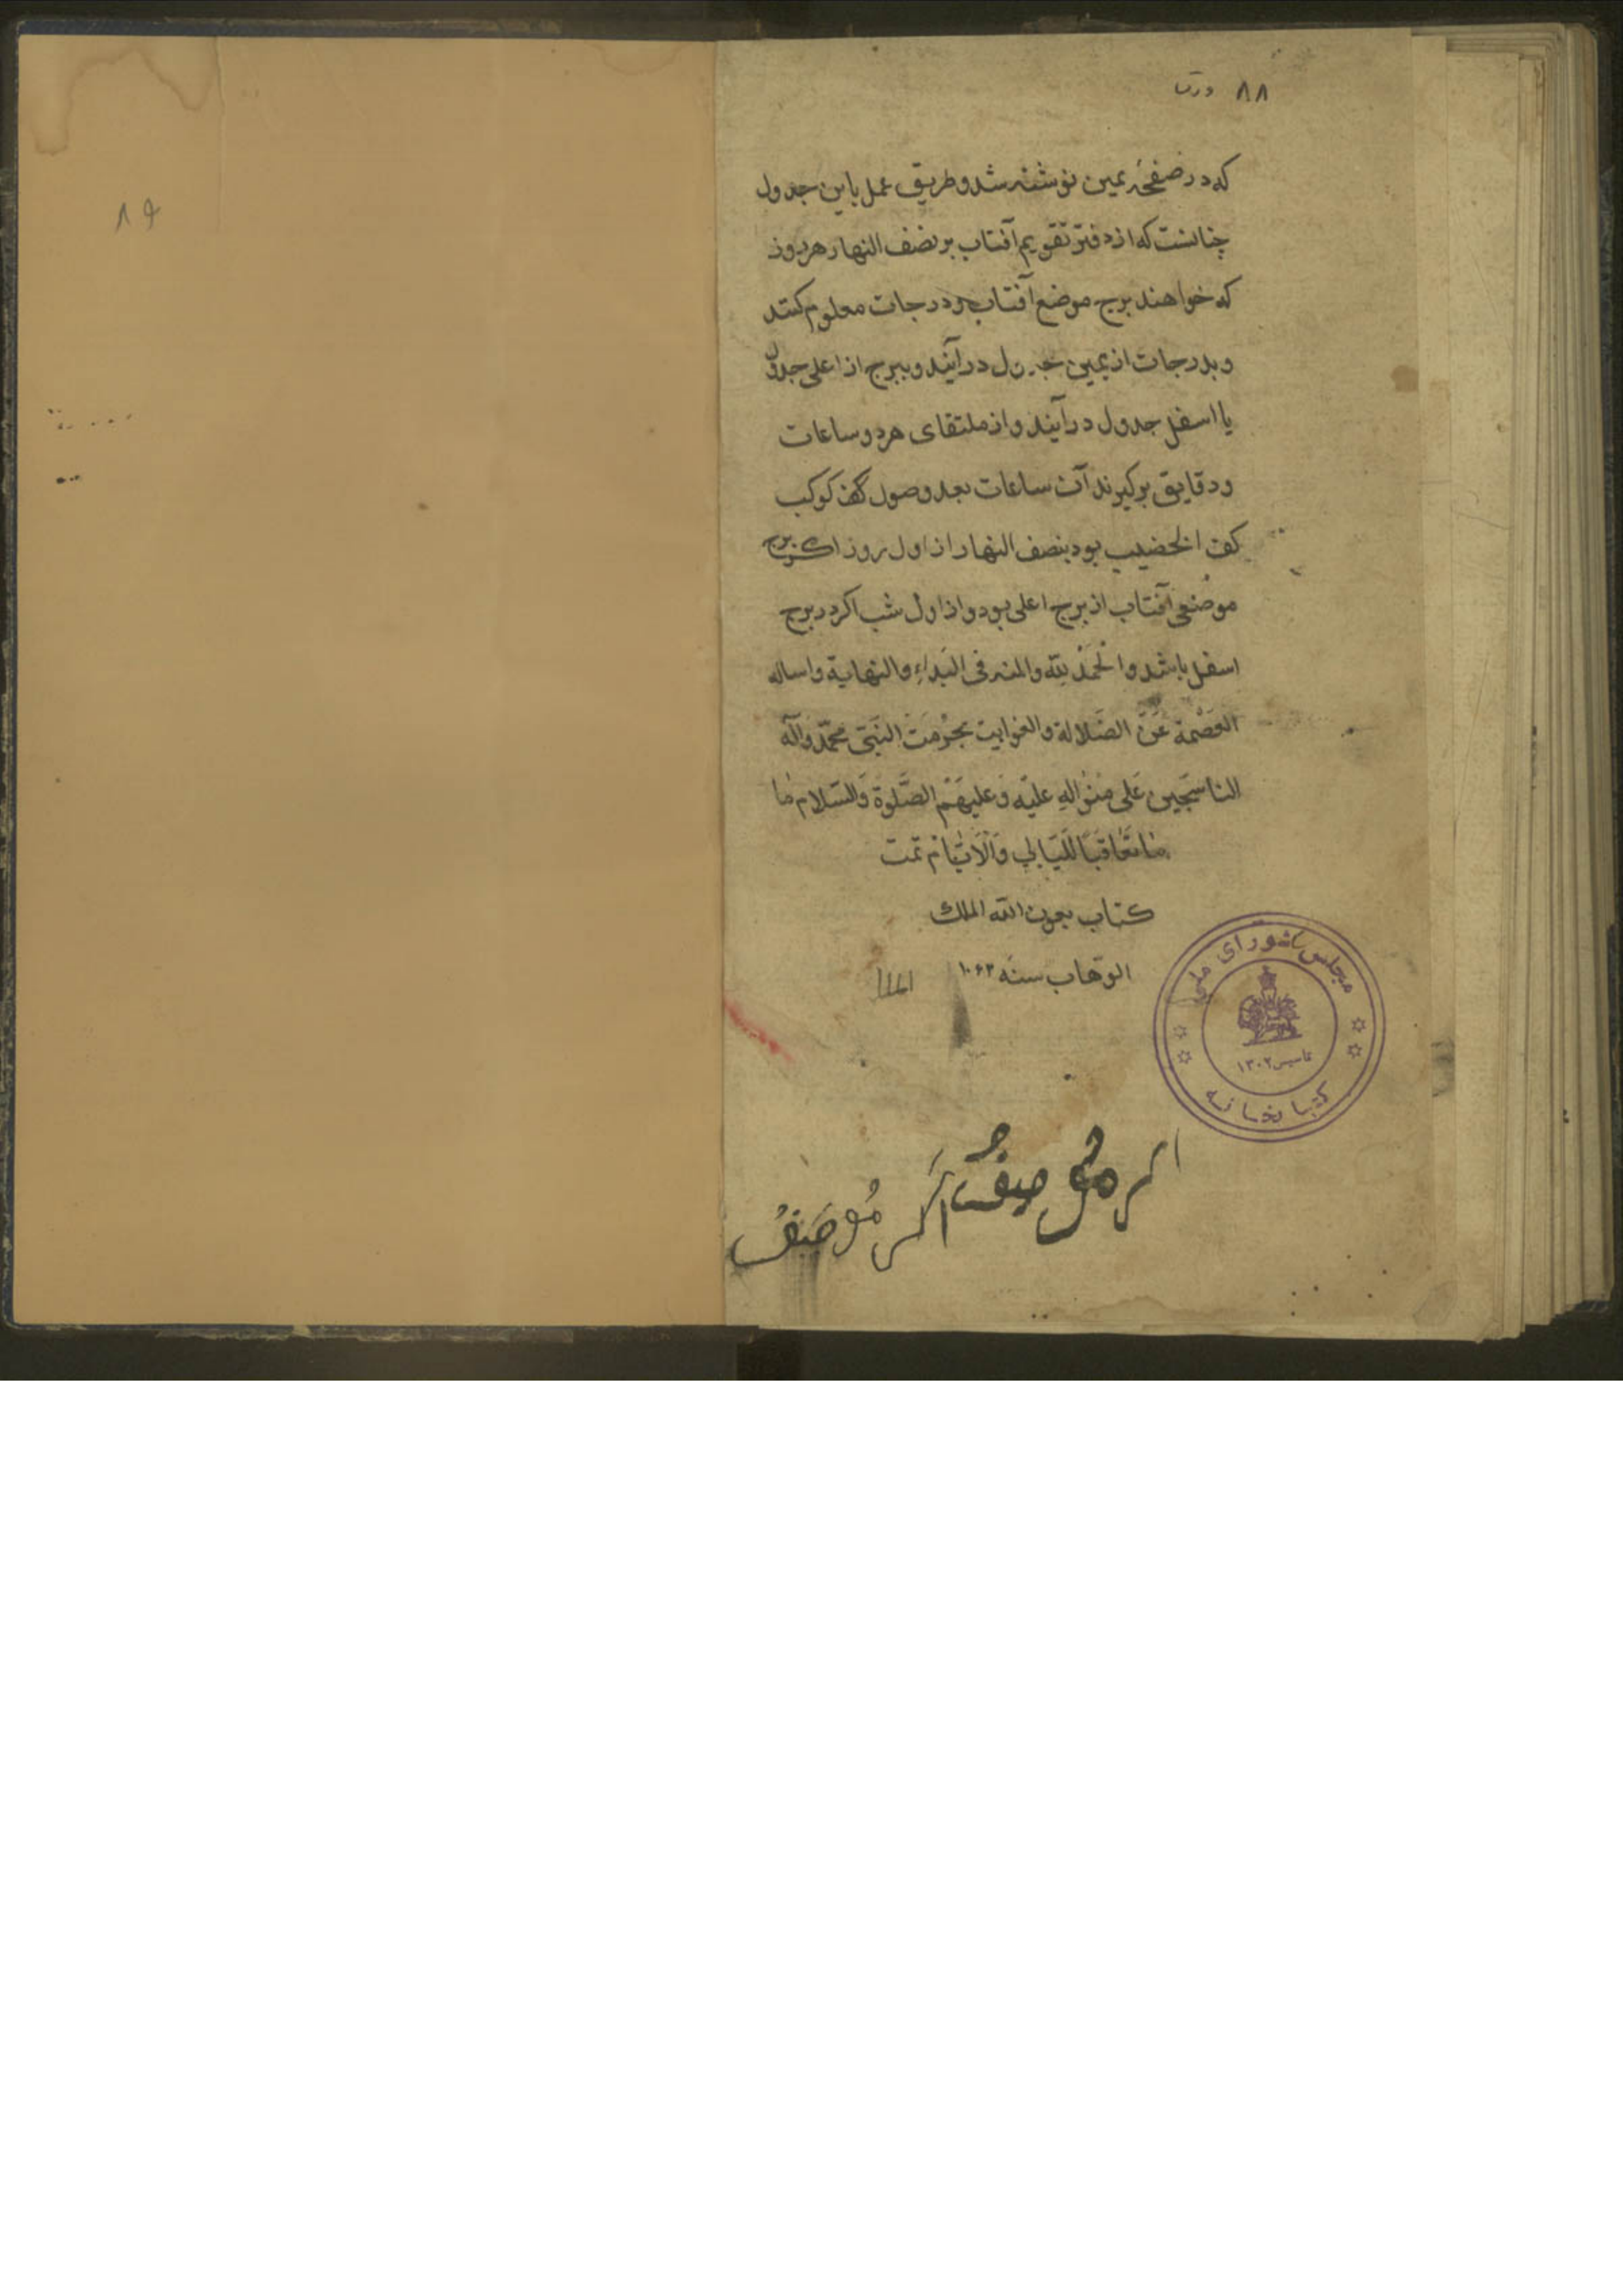 ٨٨ ورق
که در صفحهٔ یمین نوشته شد و طریق عمل باین جدول
چنانست که از دفتر تقویم آفتاب بر نصف النهار هر روز
که خواهند برج موضع آفتاب و درجات معلوم کنند
و بدرجات از یمین جدول درآیند و ببرج از اعلی جدول
یا اسفل جدول درآیند و از ملتقای هر دو ساعات
و دقایق برکیرند آن ساعات بعد وصول کوکب
کف الخضیب بود بنصف النهار از اول روز اکر برج
موضع آفتاب از برج اعلی بود و از اول شب اکر در برج
اسفل باشد و الحَمْدُ لِلّه والمنه فی البَداءِ والنهایة واساله
العِصْمة عَنْ الضَّلالة والغوایت بحُرْمَت النَبّی محمّد وآله
الناسِجین عَلی مِنْوالِهِ علَیْه وَعلیهَمْ الصَّلوة وَالسّلام مٰا
مٰا تعٰاقَبَ اللّیَالِی وَالْاَیّام تمت
کتاب بعون الله الملك
الوهّاب سنه ١٠۶٣
مجلس شورای ملی
تاسیس ١٣٠٢
کتابخانه
٨٩